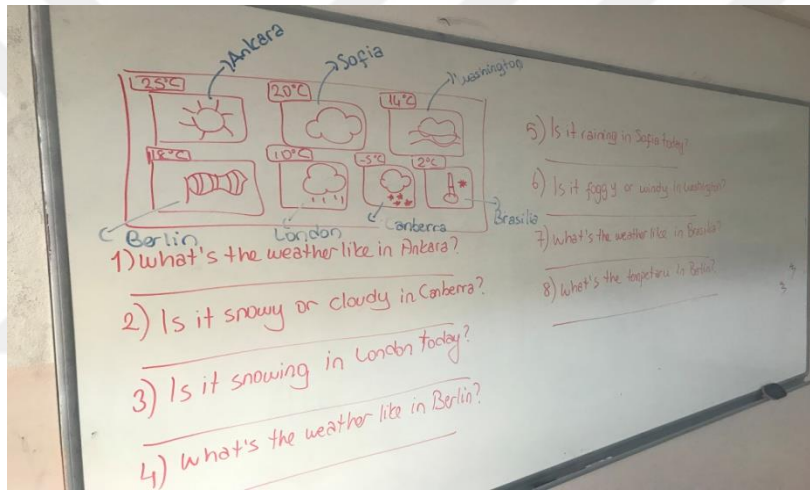 Ankara
Sofia
Washington
25°C
20°C
14°C
18°C
10°C
-5°C
2°C
Berlin
London
Canberra
Brasilia
1) What's the weather like in Ankara?
2) Is it snowy or cloudy in Canberra?
3) Is it snowing in London today?
4) What's the weather like in Berlin?
5) Is it raining in Sofia today?
6) Is it foggy or windy in Washington?
7) What's the weather like in Brasilia?
8) What's the in Berlin?